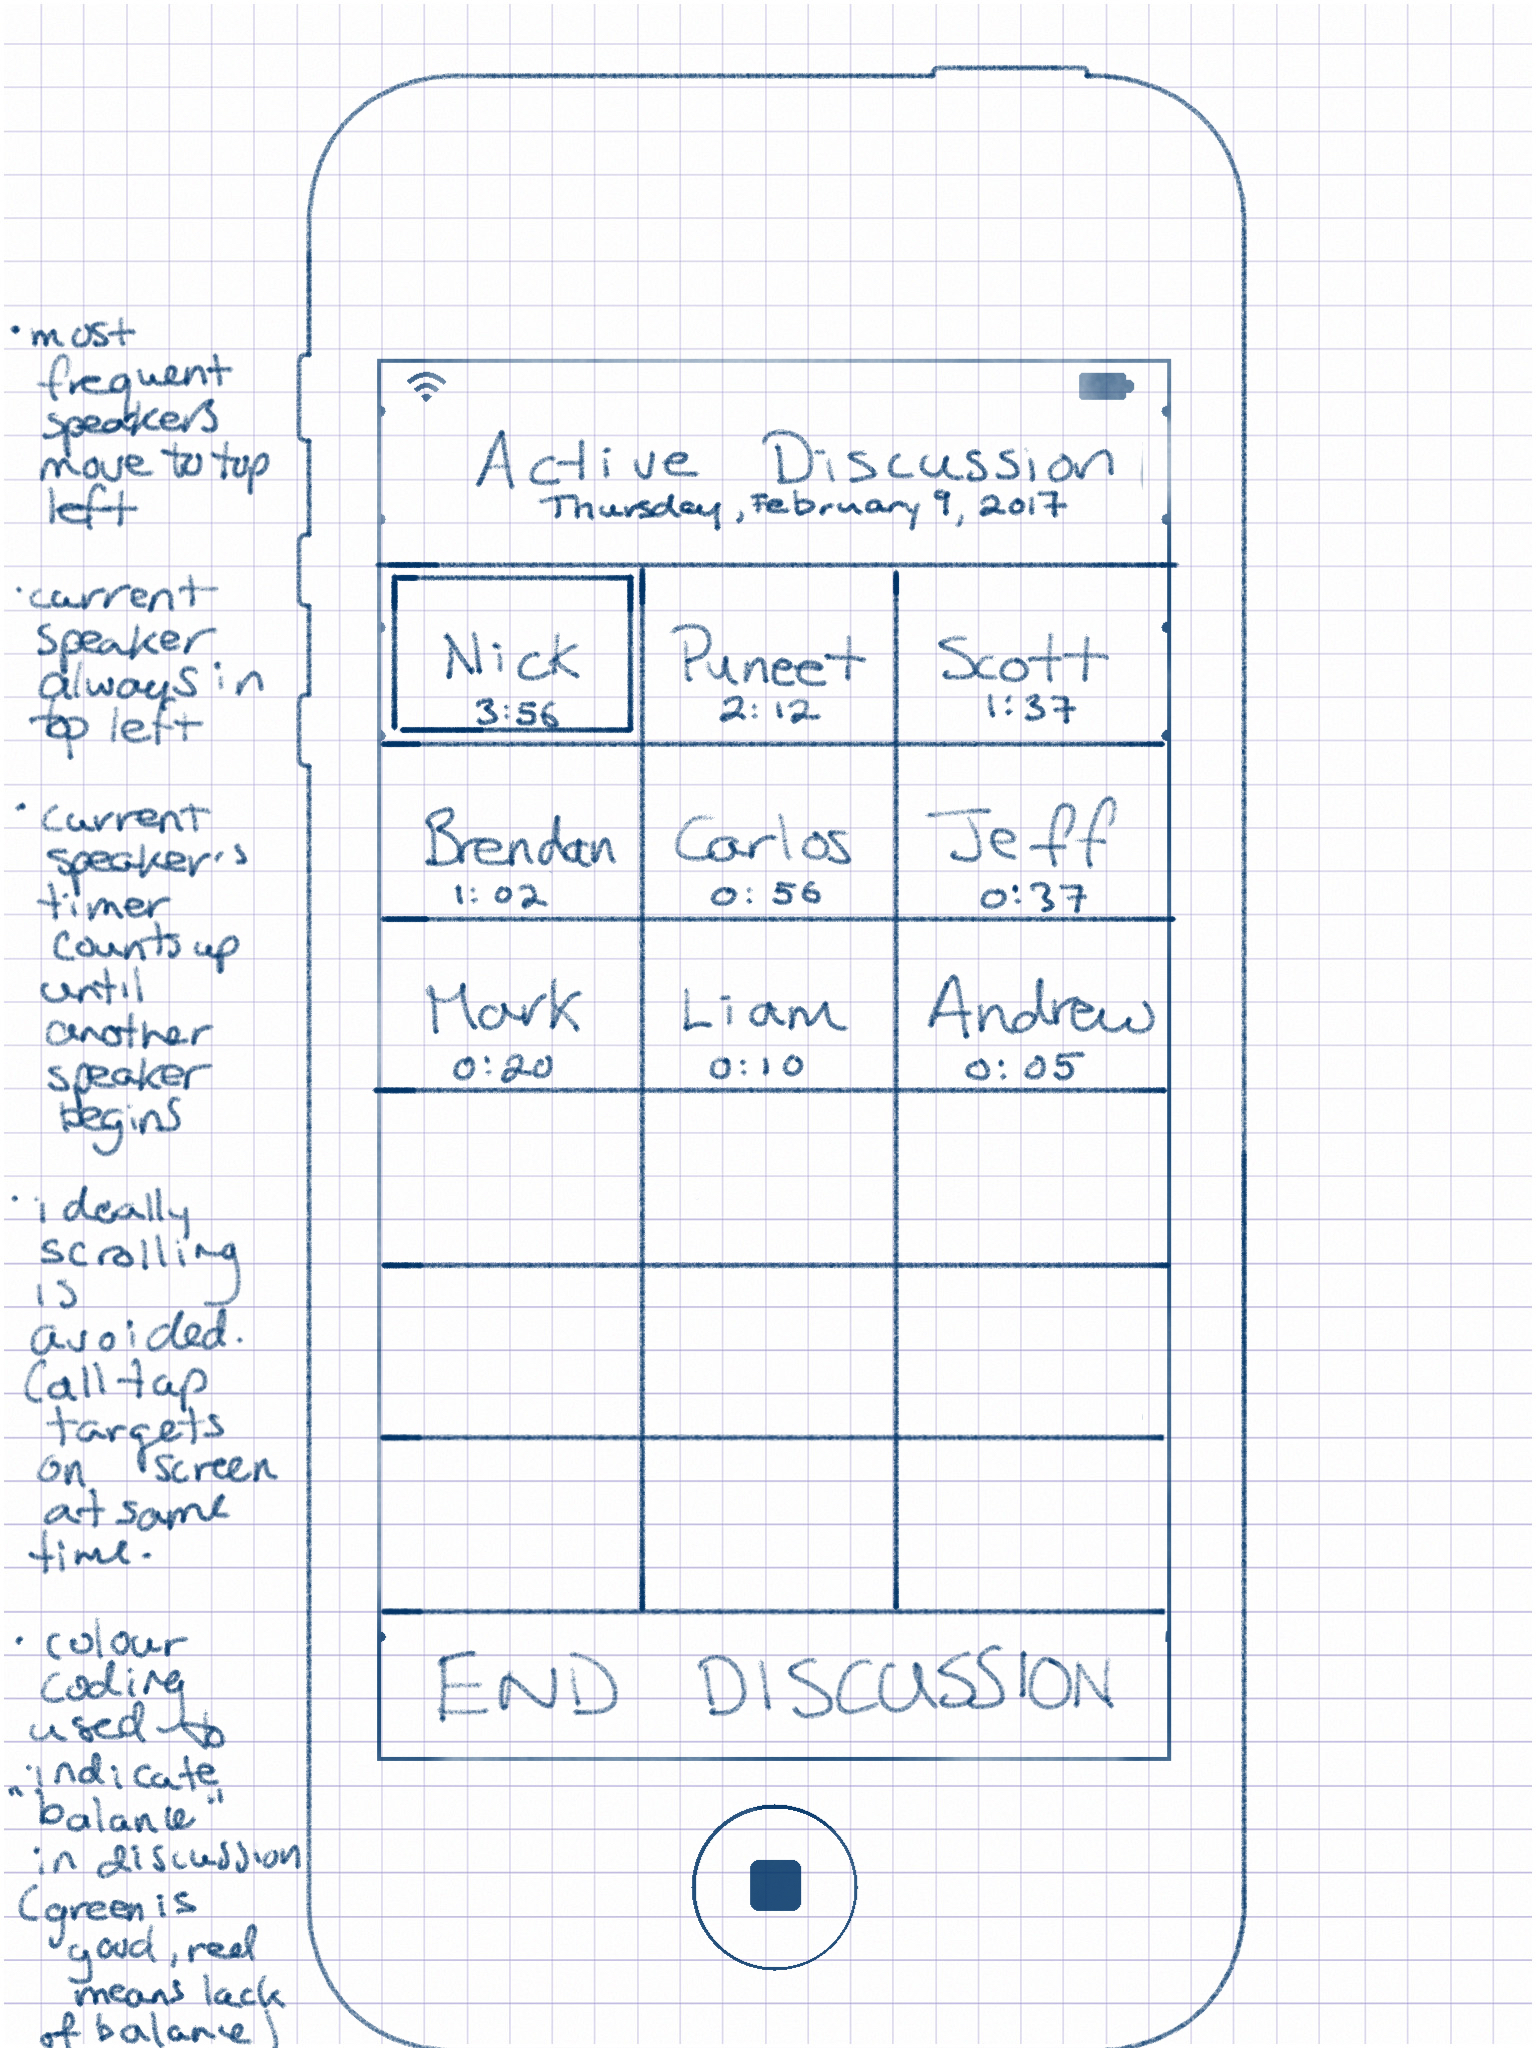 • most
frequent
speakers
move to top
left
• current
speaker
always in
top left
• current
speaker's
timer
counts up
until
another
speaker
begins
• ideally
scrolling
is
avoided.
(all tap
targets
on screen
at same
time.
• colour
coding
used to
indicate
"balance"
in discussion
(green is
good, red
means lack
of balance)
Active Discussion
Thursday, February 9, 2017
Nick Puneet Scott
3:56 2:12 1:37
Brendan Carlos Jeff
1:02 0:56 0:37
Mark Liam Andrew
0:20 0:10 0:05
END DISCUSSION